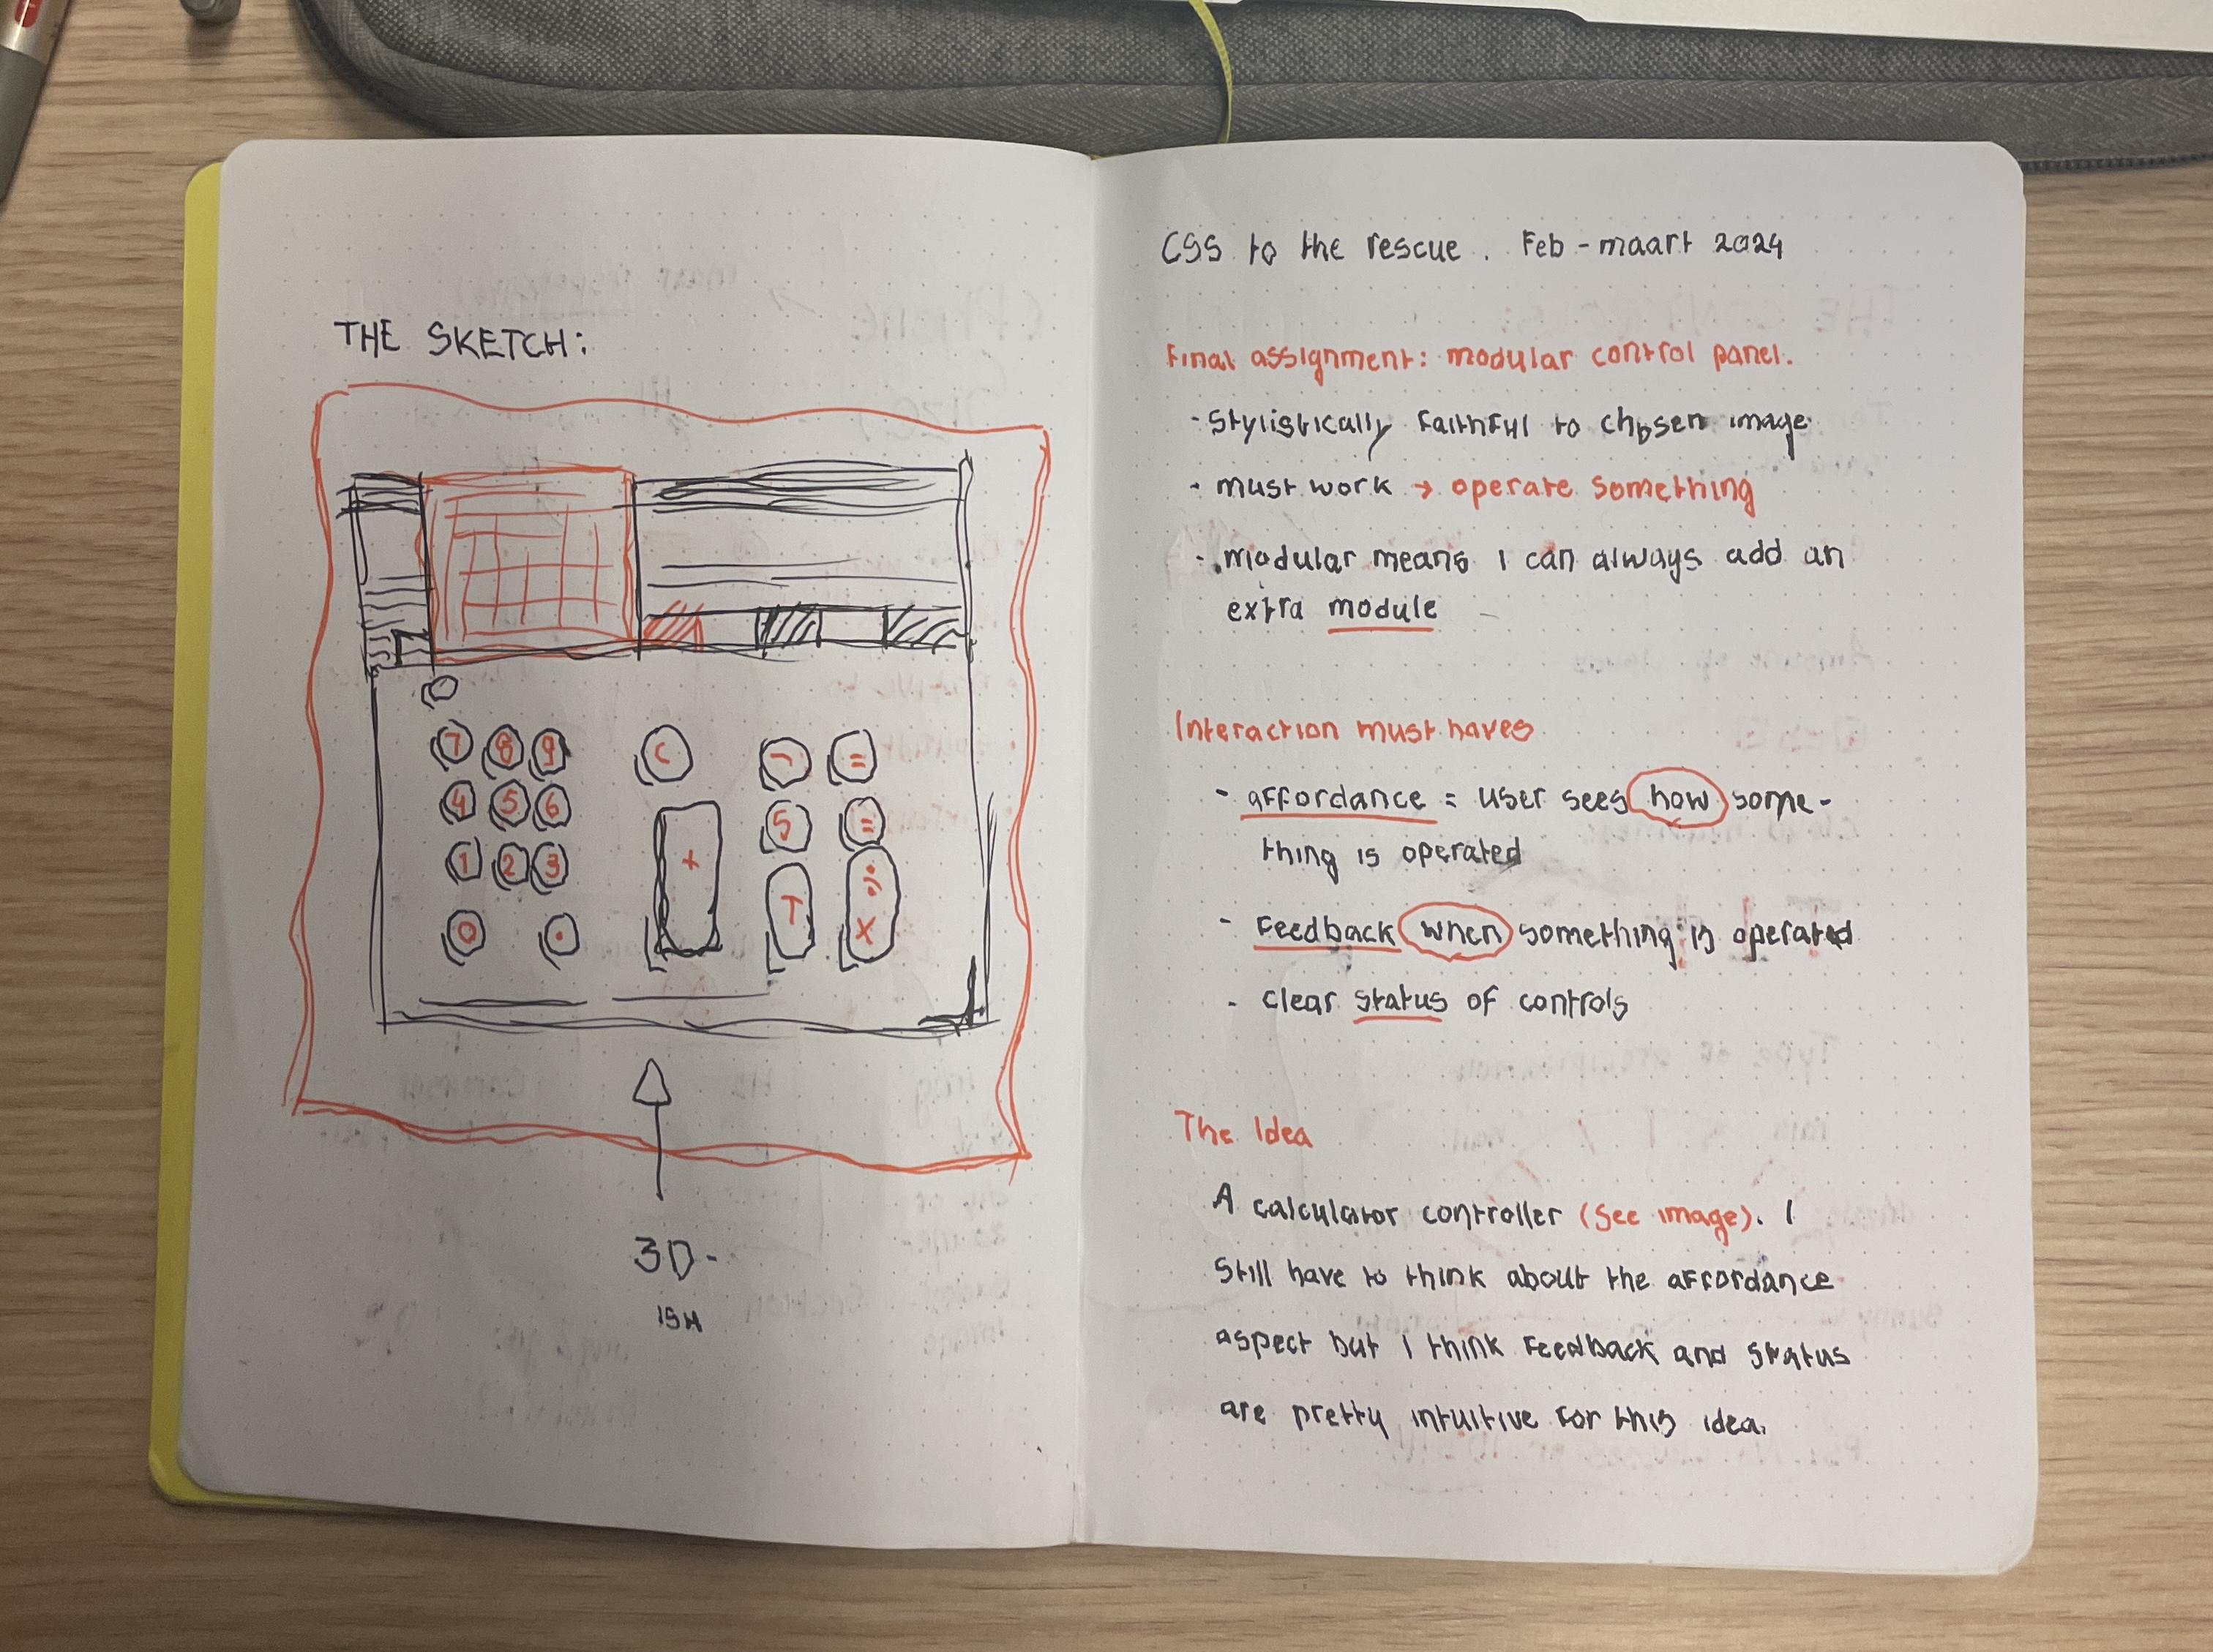 THE SKETCH:
7 8 9 C - =
4 5 6 S =
1 2 3 + T ÷
0 . X
3D-
ISH
CSS to the rescue. Feb - maart 2024
Final assignment: modular control panel.
- Stylistically faithful to chosen image
- must work → operate something
- modular means I can always add an
extra module
Interaction must haves
- affordance = user sees how some-
thing is operated
- Feedback when something is operated
- clear status of controls
The Idea
A calculator controller (see image). I
Still have to think about the affordance
aspect but I think Feedback and status
are pretty intuitive for this idea.